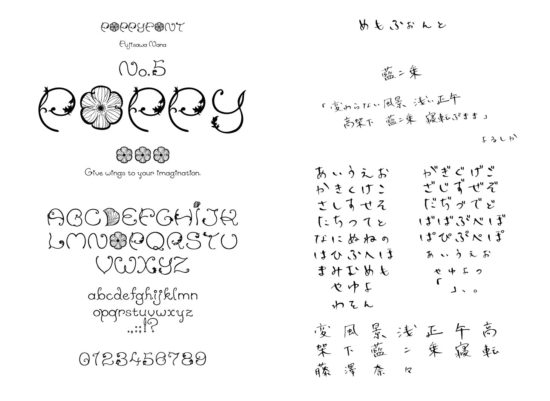 POPPYFONT
Fujisawa Nana
No.5
POPPY
Give wings to your imagination.
ABCDEFGHIJK
LMNOPQRSTU
VWXYZ
abcdefghijklmn
opqrstuvwxyz
.,:;!?
0123456789
めもふぉんと
藍二乗
「変わらない風景 浅い正午
高架下 藍二乗 寝転ぶまま」
よるしか
あいうえお
かきくけこ
さしすせそ
たちつてと
なにぬねの
はひふへほ
まみむめも
やゆよ
わをん
がぎぐげご
ざじずぜぞ
だぢづでど
ばびぶべぼ
ぱぴぷぺぽ
ぁぃぅぇぉ
ゃゅょっ
「」、。
変風景浅正午高
架下藍二乗寝転
藤澤奈々